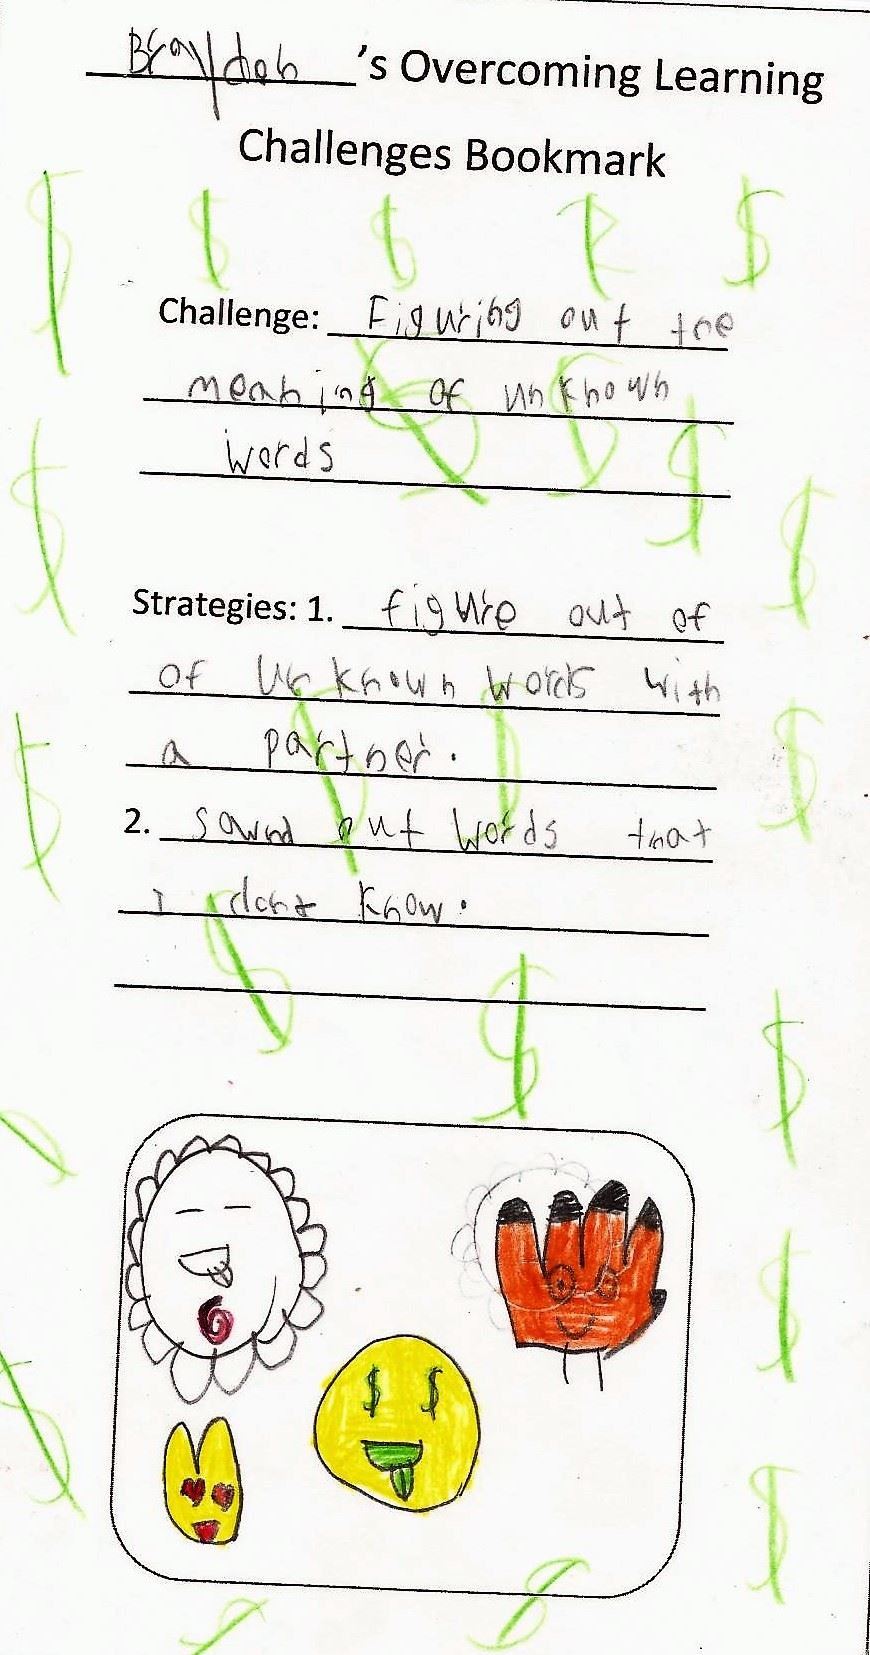 Brayden's Overcoming Learning
Challenges Bookmark
Challenge: Figuring out the
meaning of unknown
words
Strategies: 1. figure out of
of unknown words with
a partner.
2. sound out words that
I dont know.